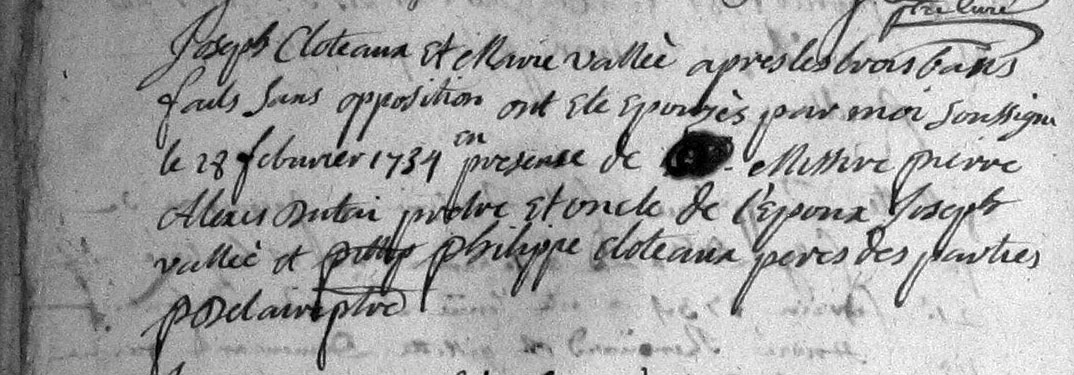 ptre curé
Joseph Cloteaux Et Marie vallèè apres les trois bans
faits Sans opposition ont ete Epousès par moi Soussigné
le 28 februrier 1734 en presense de Messire pierre
Alexis Dutai pretre Et oncle de l'Epoux Joseph
vallèè et philippe Cloteaux peres des parties
p Delaire ptre